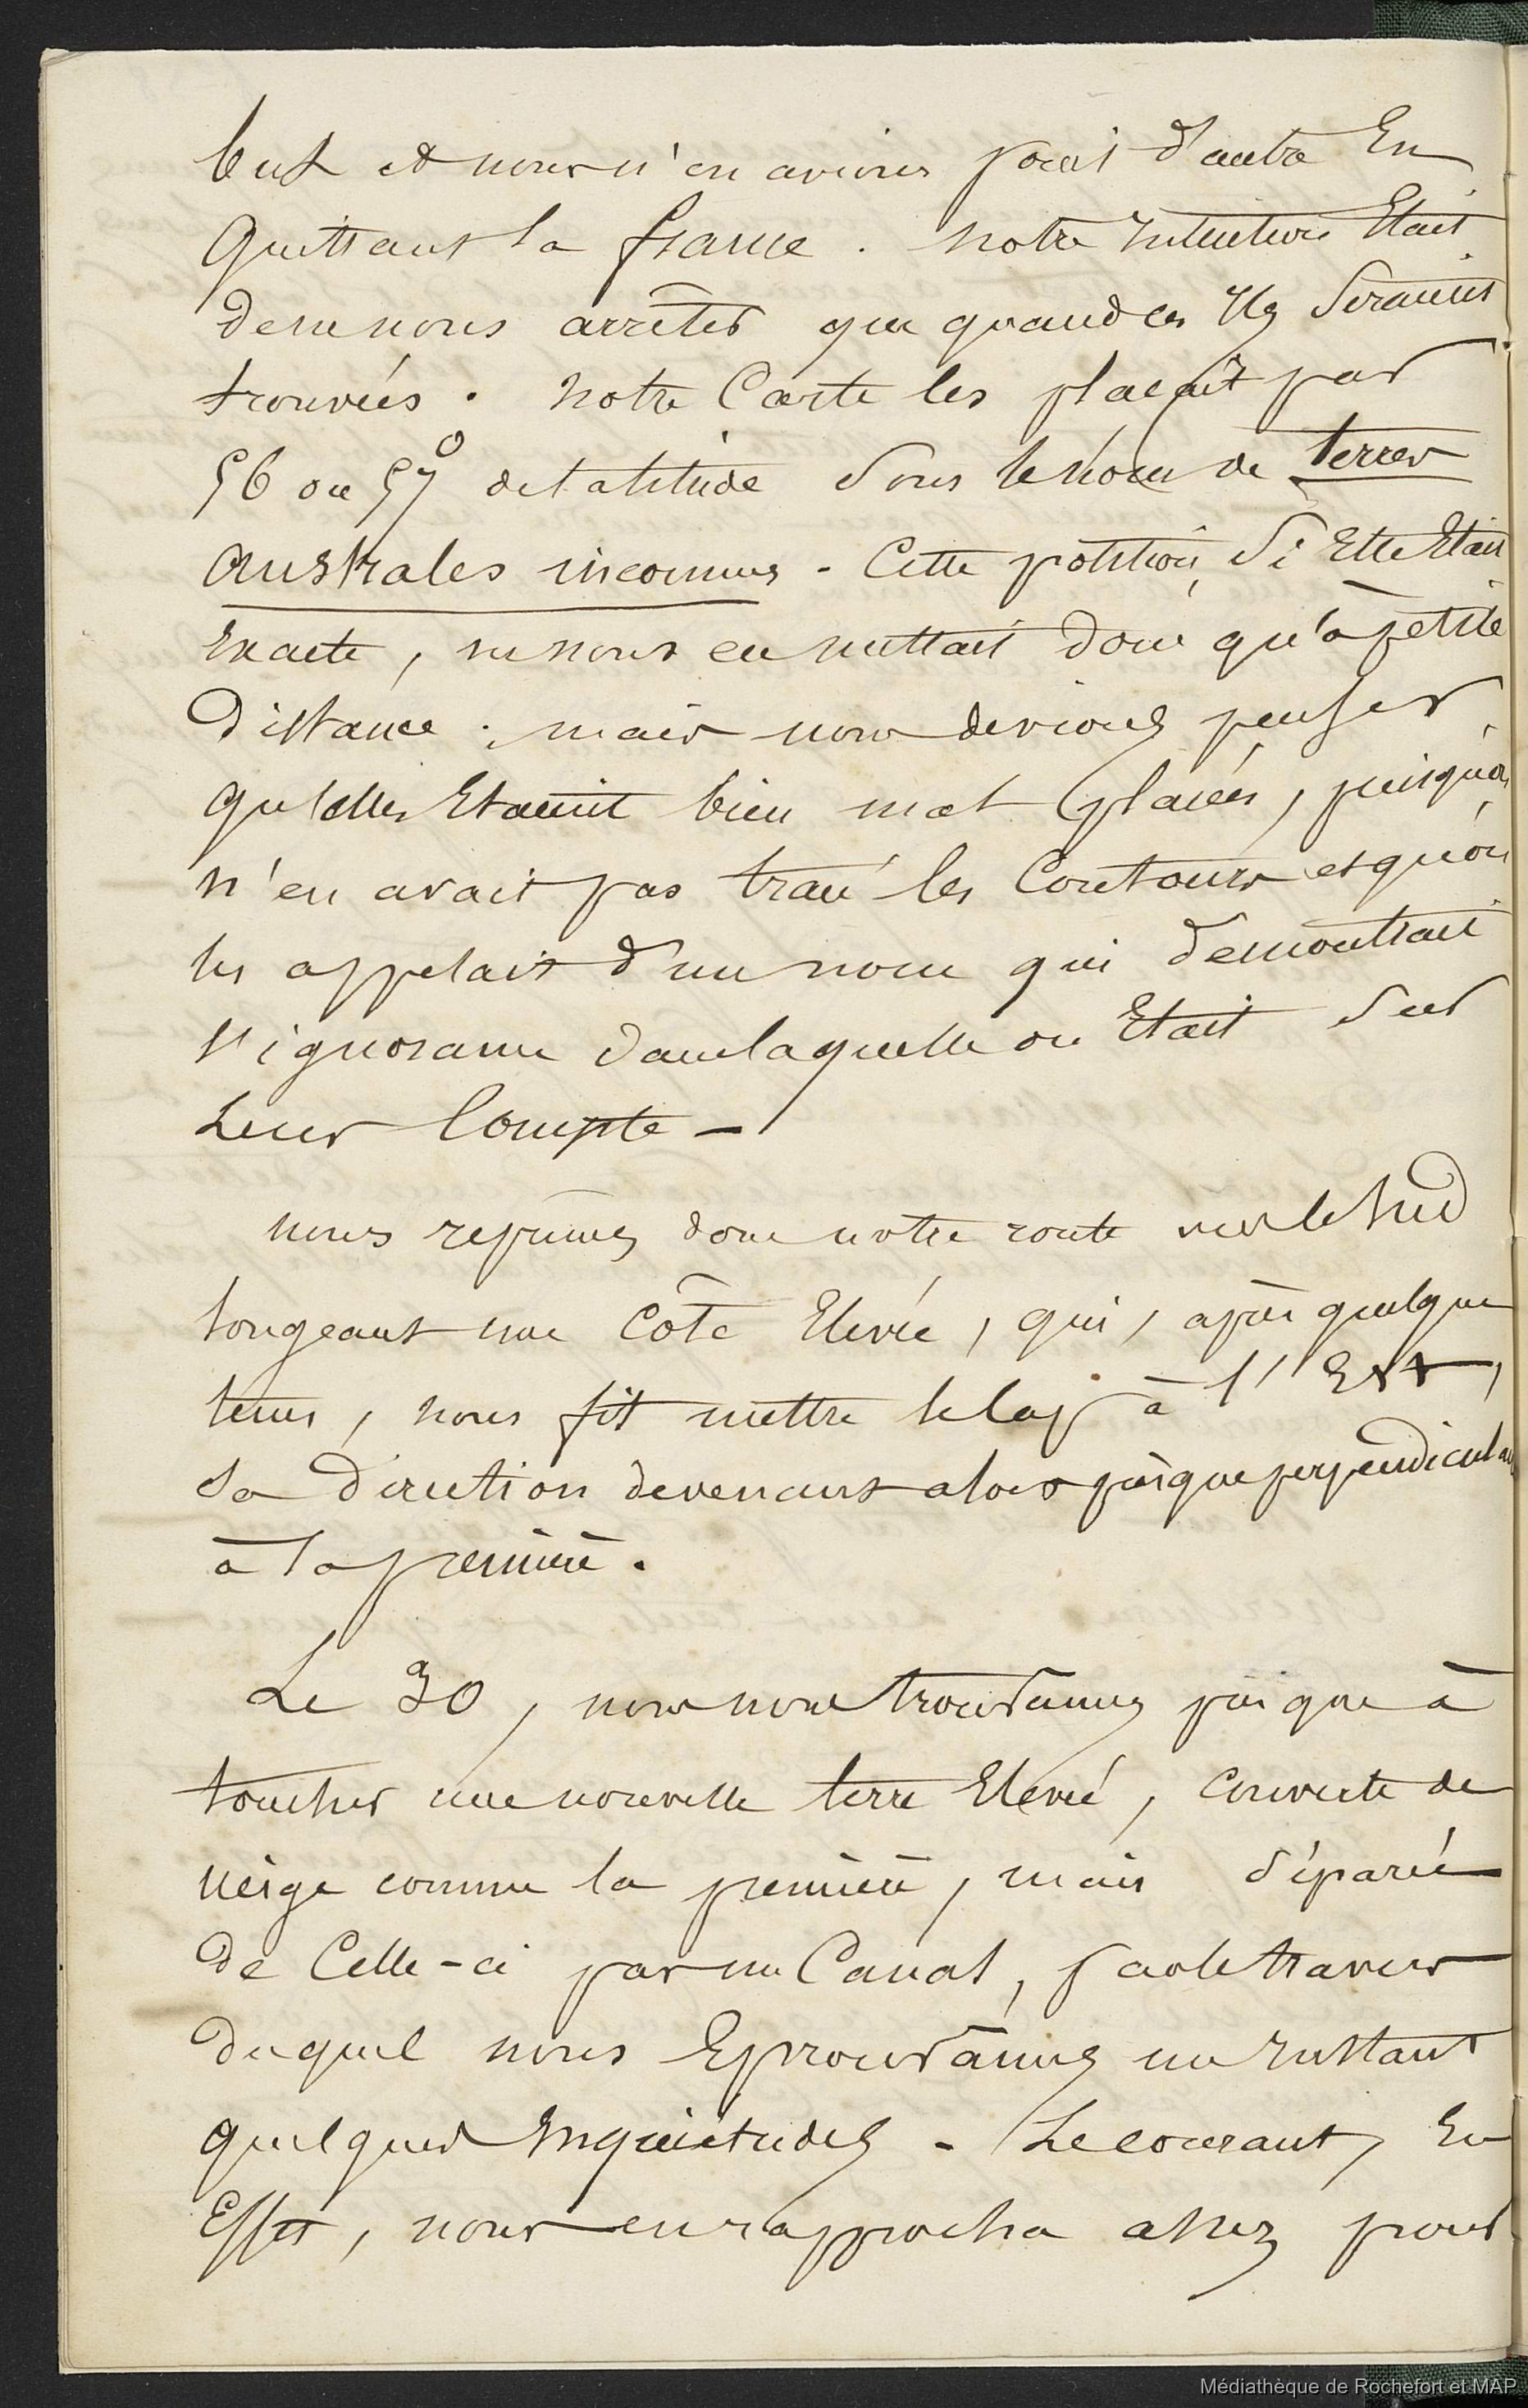 but et nous n'en avions point d'autre En
quittant la france. notre Intention Etait
de ne nous arrêter que quand ces Iles seraient
trouvées. notre Carte les plaçait par
56 ou 57° de latitude sous le nom de terres
australes inconnues. Cette position, si Elle Etait
Exacte, ne nous en mettait donc qu'à petite
distance; mais nous devions penser
qu'elles Etaient bien mal placées, puisqu'on
n'en avait pas tracé les Contours et qu'on
les appelait d'un nom qui démontrait
l'ignorance dans laquelle on Etait sur
Leur Compte -
nous reprimes donc notre route vers le Sud
longeant une Côte Elevée, qui, après quelque
tems, nous fit mettre le Cap à l'Est,
sa direction devenant alors presque perpendiculaire
à la première.
Le 30, nous nous trouvâmes presque à
toucher une nouvelle terre Elevée, couverte de
neige comme la première, mais séparée
de Celle-ci par un Canal, par le travers
duquel nous Eprouvâmes un Instant
quelques Inquiétudes. Le courant, En
Effet, nous en rapprocha assez pour
Médiathèque de Rochefort et MAP